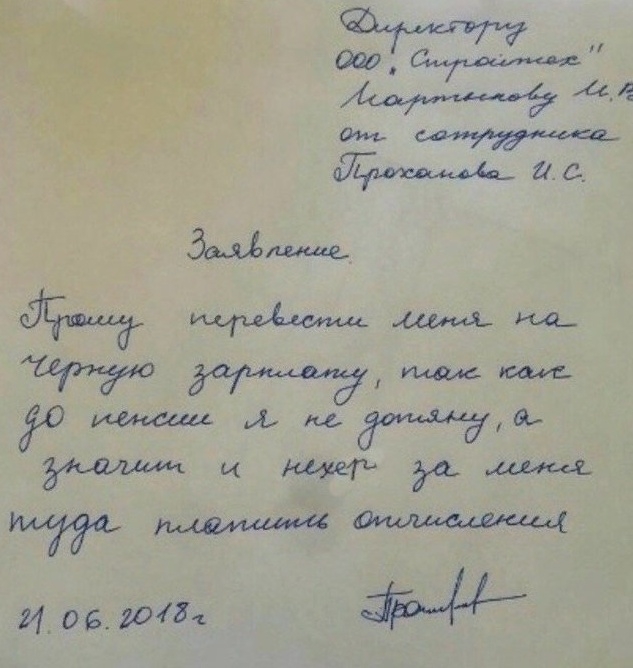 Директору
ООО „Строймех"
Мартынову И.В
от сотрудника
Проханова И.С.
Заявление.
Прошу перевести меня на
черную зарплату, так как
до пенсии я не дотяну, а
значит и нехер за меня
туда платить отчисления
21.06.2018г